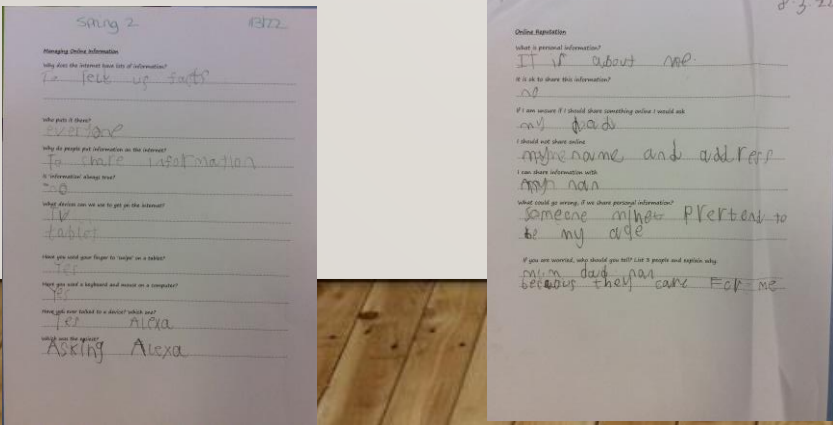 Spring 2
1/3/22
Managing Online Information
Why does the internet have lots of information?
To tell us facts
Who puts it there?
everyone
Why do people put information on the internet?
To share information
Is 'information' always true?
no
What devices can we use to get on the internet?
tablet
Have you used your finger to 'swipe' on a tablet?
Yes
Have you used a keyboard and mouse on a computer?
Yes
Have you ever talked to a device? Which one?
Yes Alexa
Which was the easiest?
Asking Alexa
8.3.22
Online Reputation
What is personal information?
IT is about me.
Is it ok to share this information?
no
If I am unsure if I should share something online I would ask
my dad
I should not share online
name and address
I can share information with
nan
What could go wrong, if we share personal information?
Someone Prertend to
be my age
If you are worried, who should you tell? List 3 people and explain why.
mum dad nan
they care For me